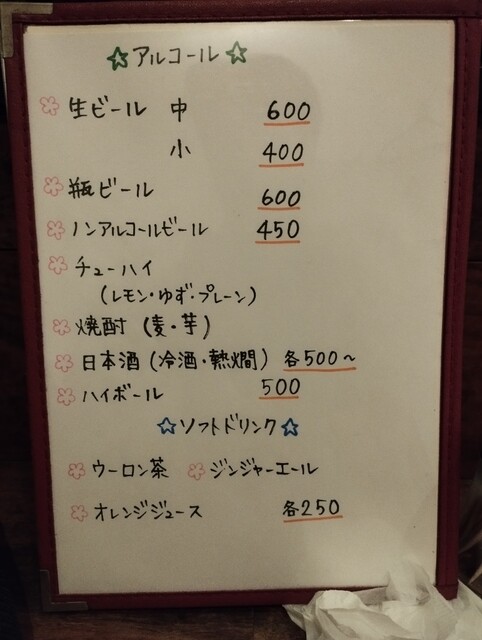 ☆アルコール☆
生ビール 中 600
小 400
瓶ビール 600
ノンアルコールビール 450
チューハイ
(レモン・ゆず・プレーン)
焼酎 (麦・芋)
日本酒 (冷酒・熱燗) 各500~
ハイボール 500
☆ソフトドリンク☆
ウーロン茶 ジンジャーエール
オレンジジュース 各250